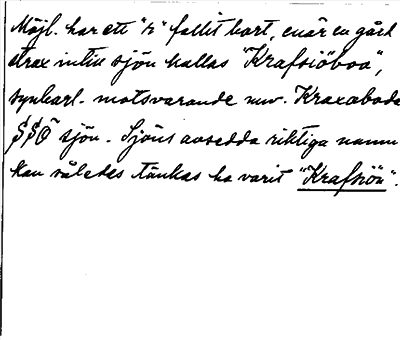 Möjl. har ett "k" fallit bort, enär en gård
strax intill sjön kallas "Krafsiöboa",
synbarl. motsvarande nuv. Kraxaboda
SSÖ sjön. Sjöns avsedda riktiga namn
kan således tänkas ha varit "Krafsiön".